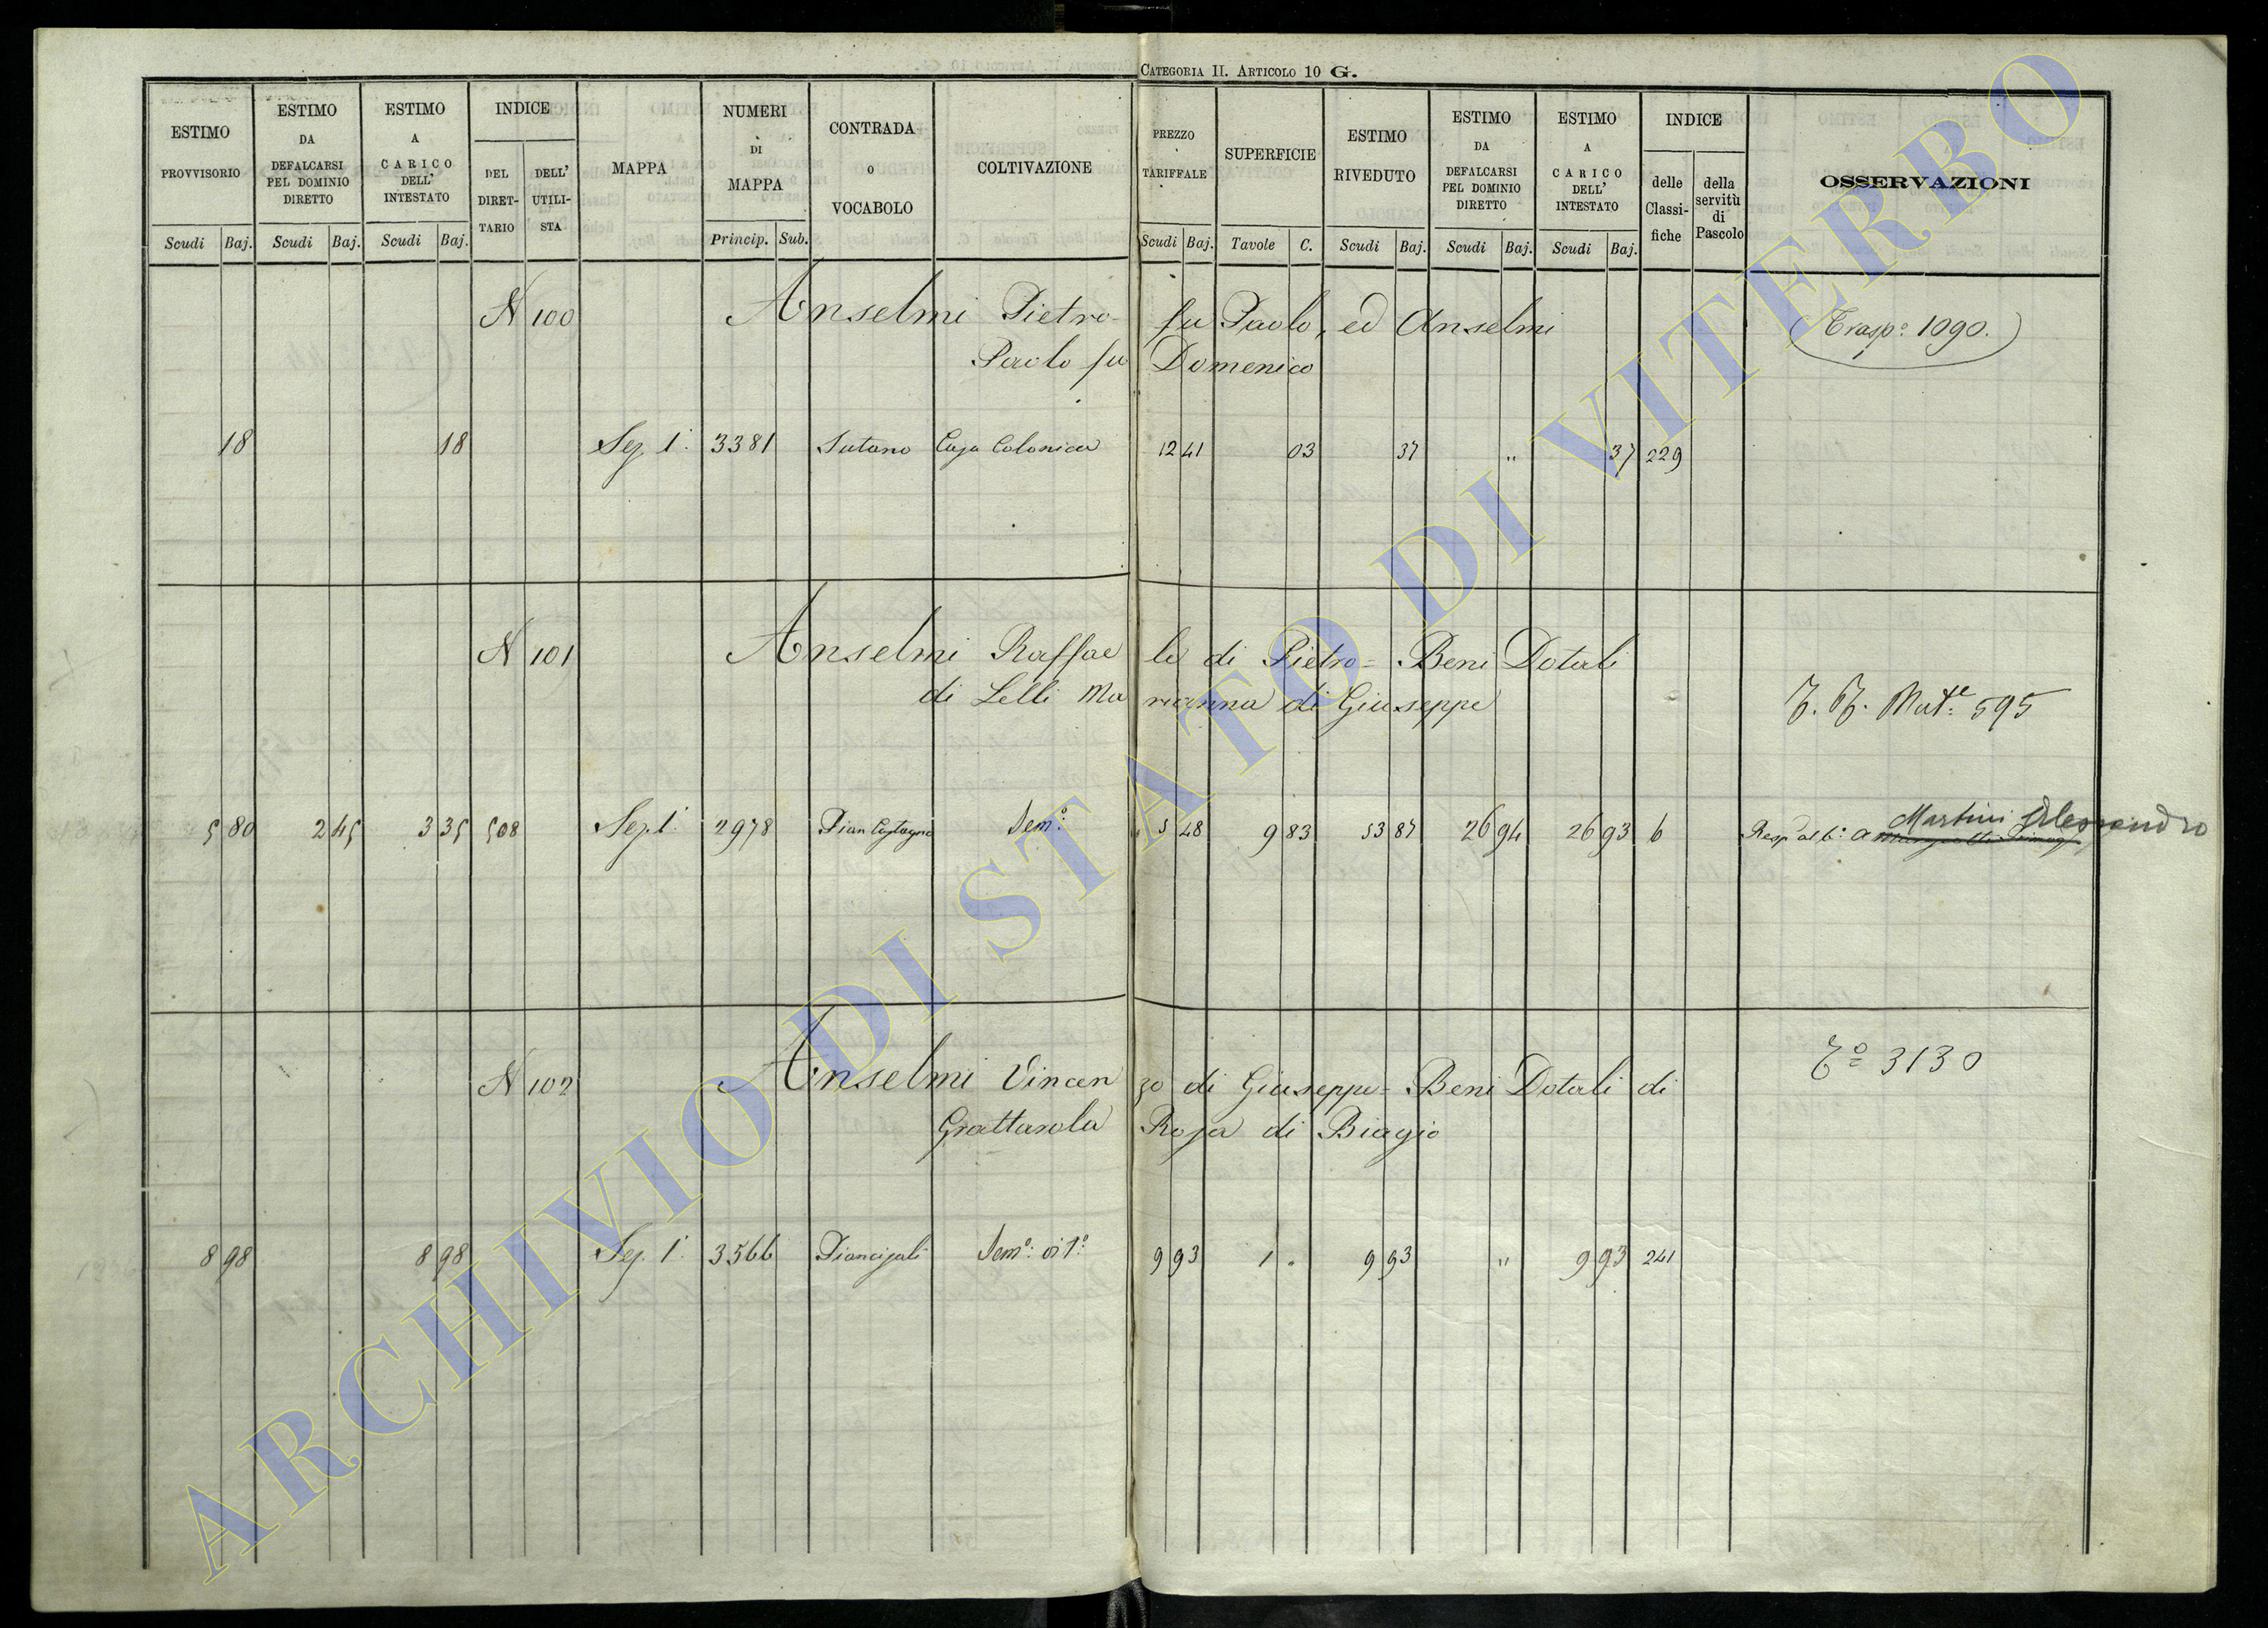 CATEGORIA II. ARTICOLO 10 G.
ESTIMO PROVVISORIO
ESTIMO DA DEFALCARSI PEL DOMINIO DIRETTO
ESTIMO A CARICO DELL' INTESTATO
INDICE
DEL DIRETTARIO
DELL' UTILISTA
MAPPA
NUMERI DI MAPPA
CONTRADA O VOCABOLO
COLTIVAZIONE
PREZZO TARIFFALE
SUPERFICIE
ESTIMO RIVEDUTO
ESTIMO DA DEFALCARSI PEL DOMINIO DIRETTO
ESTIMO A CARICO DELL' INTESTATO
INDICE
delle Classifiche
della servitù di Pascolo
OSSERVAZIONI
Scudi Baj. Scudi Baj. Scudi Baj. Princip. Sub. Scudi Baj. Tavole C. Scudi Baj. Scudi Baj. Scudi Baj.
N 100 Anselmi Pietro fu Paolo, ed Anselmi
Traspo: 1090.
Paolo fu Domenico
18 18 Sez. 1: 3381 Sutano Casa Colonica 12 41 03 37 " 37 229
N 101 Anselmi Raffaele di Pietro = Beni Dotali
di Lelli Marianna di Giuseppe
Mut.e 595
5 80 2 45 3 35 508 Sez. 1: 2978 Pian Castagno Semo: 5 48 9 83 53 87 26 94 26 93 6 Resp al b: a Martini Alessandro
N 102 Anselmi Vincenzo di Giuseppe = Beni Dotali di
To 3130
Grattarola Rosa di Biagio
8 98 8 98 Sez. 1: 3566 Piancisali Semo: vito: 9 93 1 " 9 93 " 9 93 241
ARCHIVIO DI STATO DI VITERBO